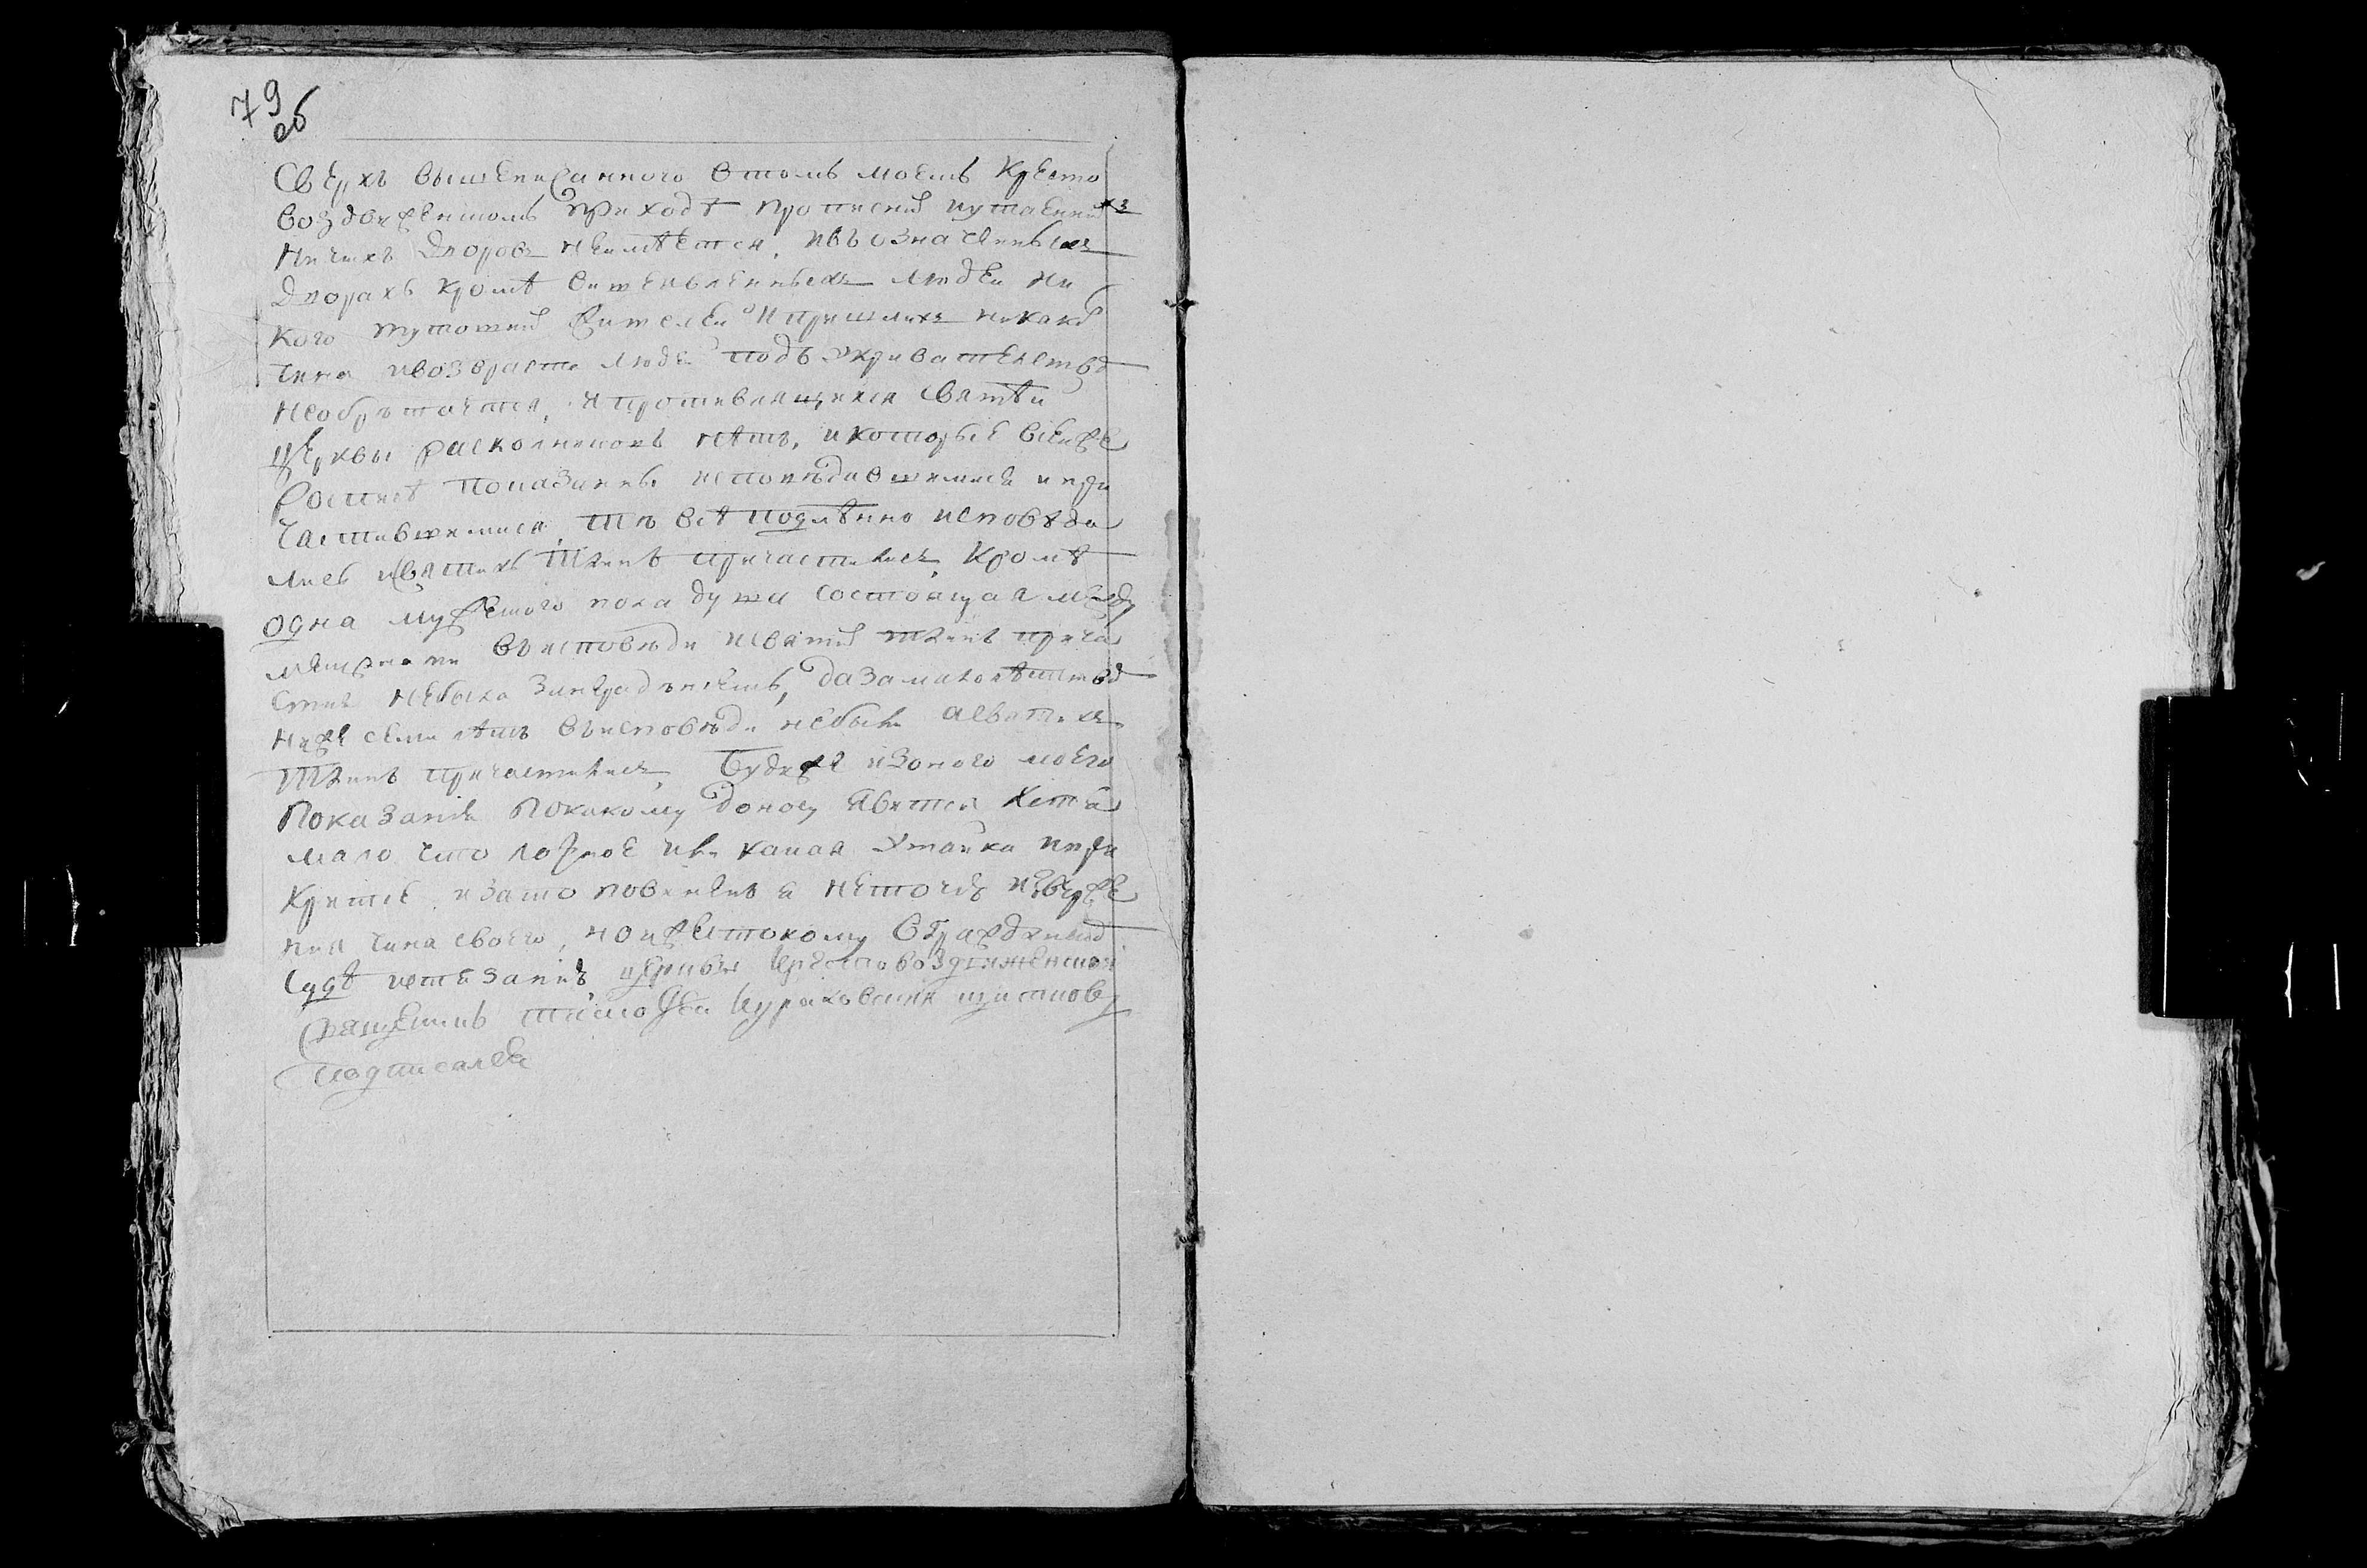 79
об
Сверхъ вышеписанного втомъ моемъ кресто
воздвиженскомъ приходѣ прописныхъ иутаенныхъ
ничьихъ дворовъ неимѣется, ивъ означенныхъ
дворахъ кромѣ вышеявленныхъ людей ни
кого тутошнихъ жителей ипришлихъ никакова
чина ивозраста людей подъ укривателствомъ
необрѣтается, ипротивляющихся святѣй
церквы расколниковъ нѣтъ, икоторые всейже
росписѣ показанны исповѣдавшимися ипри
частившимися, тѣ всѣ подлѣнно исповѣда
лись исвятихъ таинъ причастились, кромѣ
одна мужеского пола душа состоящая между
въисповѣди исвятихъ таинъ прича
стия небыла занерадѣниемъ, дазамалолѣтствомъ
ниже семи лѣтъ въисповѣди небыли асвятихъ
таинъ причастились, Будиже изоного моего
показания покакому доносу явится хотя
мало что ложное или какая утайка ипри
критие, изато повиненъ я неточию извѣрже
ния чина своего, но ижестокому вгражданскомъ
судѣ истязанию, церквы крестовоздвиженской
священникъ
подписался